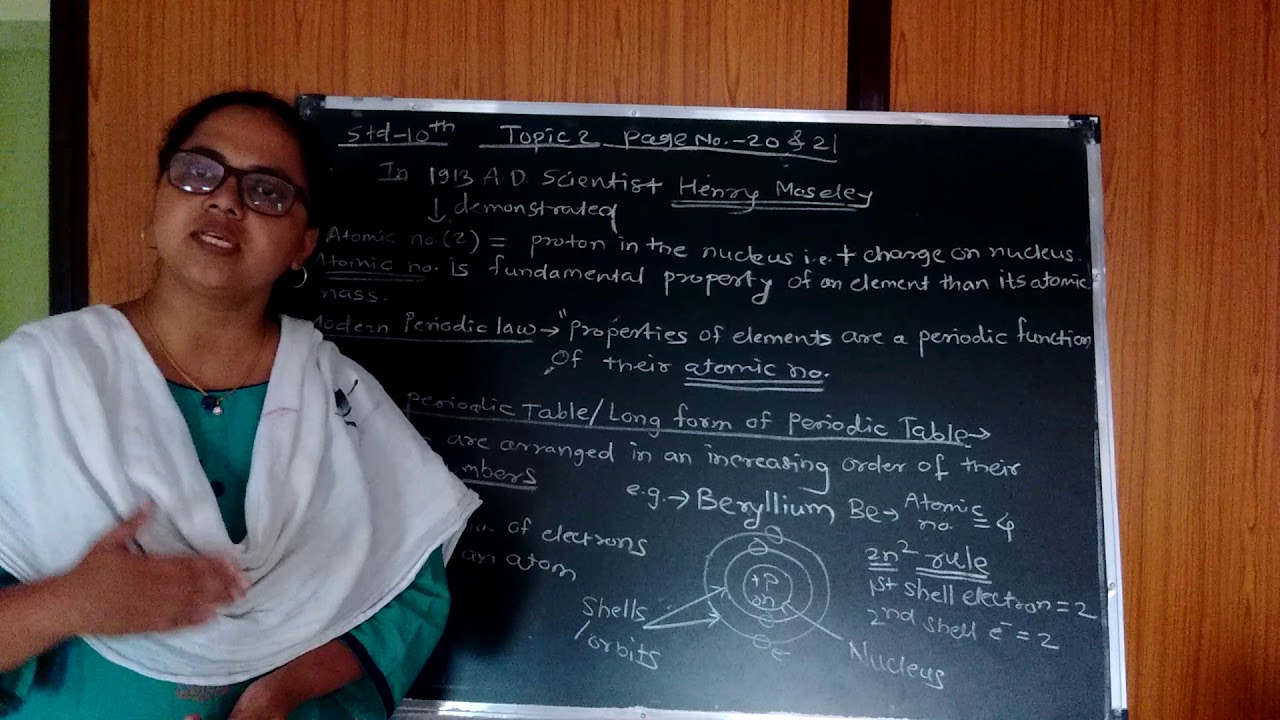 Std-10th Topic 2 Page No.-20 & 21
In 1913 A.D. Scientist Henry Moseley
↓ demonstrated
Atomic no.(Z) = proton in the nucleus i.e. + charge on nucleus.
) Atomic no. is fundamental property of an element than its atomic
mass.
Modern Periodic law → "Properties of elements are a periodic function
of their atomic no.
periodic Table/Long form of Periodic Table→
are arranged in an increasing order of their
mbers
e.g.→ Beryllium Be→ Atomic
no. = 4
of electrons
an atom
2n² rule
1st shell electron = 2
2nd shell e⁻ = 2
+P
on
e
Shells
/orbits
Nucleus